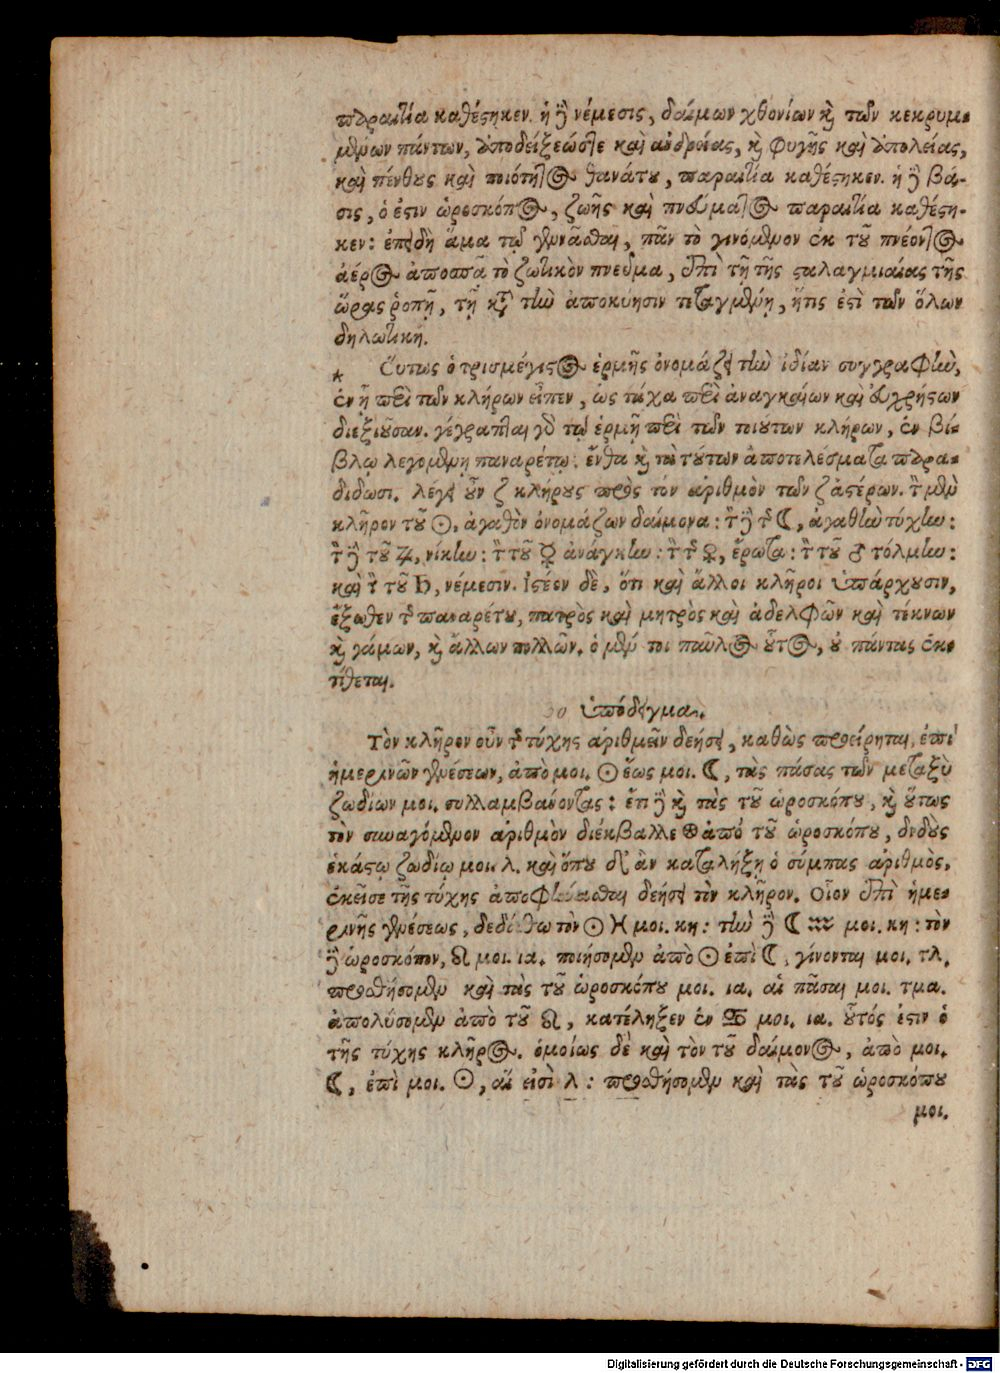 παραιτία καθέστηκεν. ἡ δὲ νέμεσις, δαίμων χθονίων καὶ τῶν κεκρυμ-
μένων πάντων, ἀποδείξεώς τε καὶ ἀνδρείας, καὶ φυγῆς καὶ ἀπολείας,
καὶ πένθους καὶ ποιότητος θανάτου, παραιτία καθέστηκεν. ἡ δὲ βά-
σις, ὅ ἐστιν ὡροσκόπος, ζωῆς καὶ πνεύματος παραιτία καθέστη-
κεν: ἐπειδὴ ἅμα τῷ γενᾶσθαι, πᾶν τὸ γινόμενον ἐκ τοῦ πνέοντος
ἀέρος ἀποσπᾷ τὸ ζωτικὸν πνεῦμα, ἐπὶ τῇ τῆς σταλαγμιαίας τῆς
ὥρας ῥοπῇ, τῇ κατὰ τὴν ἀποκύησιν τεταγμένῃ, ἥτις ἐστὶ τῶν ὅλων
δηλωτική.
* Οὕτως ὁ τρισμέγιστος ἑρμῆς ὀνομάζει τὴν ἰδίαν συγγραφὴν,
ἐν ᾗ περὶ τῶν κλήρων εἶπεν, ὡς τάχα περὶ ἀναγκαίων καὶ εὐχρήστων
διεξιοῦσαν. γέγραπται γὰρ τῷ ἑρμῇ περὶ τῶν τοιούτων κλήρων, ἐν βί-
βλῳ λεγομένῃ παναρέτῳ: ἔνθα καὶ τὰ τούτων ἀποτελέσματα παρα-
δίδωσι. λέγει οὖν ζ κλήρους πρὸς τὸν ἀριθμὸν τῶν ζ ἀστέρων. τὸν μὲν
κλῆρον τοῦ ☉, ἀγαθὸν ὀνομάζων δαίμονα: τὸν δὲ τῆς ☾, ἀγαθὴν τύχην:
τὸν δὲ τοῦ ♃, νίκην: τὸν τοῦ ☿ ἀνάγκην: τὸν τῆς ♀, ἔρωτα: τὸν τοῦ ♂ τόλμην:
καὶ τὸν τοῦ ♄, νέμεσιν. Ἰστέον δὲ, ὅτι καὶ ἄλλοι κλῆροι ὑπάρχουσιν,
ἔξωθεν τῆς παναρέτου, πατρὸς καὶ μητρὸς καὶ ἀδελφῶν καὶ τέκνων
καὶ γάμων, καὶ ἄλλων πολλῶν. ὁ μέν τοι παῦλος οὗτος, οὐ πάντας ἐκ-
τίθεται.
ὑπόδειγμα.
Τὸν κλῆρον οὖν τῆς τύχης ἀριθμεῖν δεήσει, καθὼς προείρηται, ἐπὶ
ἡμερινῶν γενέσεων, ἀπὸ μοι. ☉ ἕως μοι. ☾, τὰς πάσας τῶν μεταξὺ
ζωδίων μοι. συλλαμβάνοντας: ἔτι δὲ καὶ τὰς τοῦ ὡροσκόπου, καὶ οὕτως
τὸν συναγόμενον ἀριθμὸν διέκβαλλε ⊕ ἀπὸ τοῦ ὡροσκόπου, διδοὺς
ἑκάστῳ ζωδίῳ μοι. λ. καὶ ὅπου δ' ἂν καταλήξῃ ὁ σύμπας ἀριθμὸς,
ἐκεῖσε τῆς τύχης ἀποφαίνεσθαι δεήσει τὸν κλῆρον. Οἷον ἐπὶ ἡμε-
ρινῆς γενέσεως, δεδόσθω τὸν ☉ ♓ μοι. κη: τὴν δὲ ☾ ♒ μοι. κη: τὸν
δὲ ὡροσκόπον, ♌ μοι. ια. ποιήσομεν ἀπὸ ☉ ἐπὶ ☾, γίνονται μοι. τλ.
προσθήσομεν καὶ τὰς τοῦ ὡροσκόπου μοι. ια. αἱ πᾶσαι μοι. τμα.
ἀπολύσομεν ἀπὸ τοῦ ♌, κατέληξεν ἐν ♋ μοι. ια. οὗτός ἐστιν ὁ
τῆς τύχης κλῆρος. ὁμοίως δὲ καὶ τὸν τοῦ δαίμονος, ἀπὸ μοι.
☾, ἐπὶ μοι. ☉, αἵ εἰσὶ λ: προσθήσομεν καὶ τὰς τοῦ ὡροσκόπου
μοι.
Digitalisierung gefördert durch die Deutsche Forschungsgemeinschaft - DFG